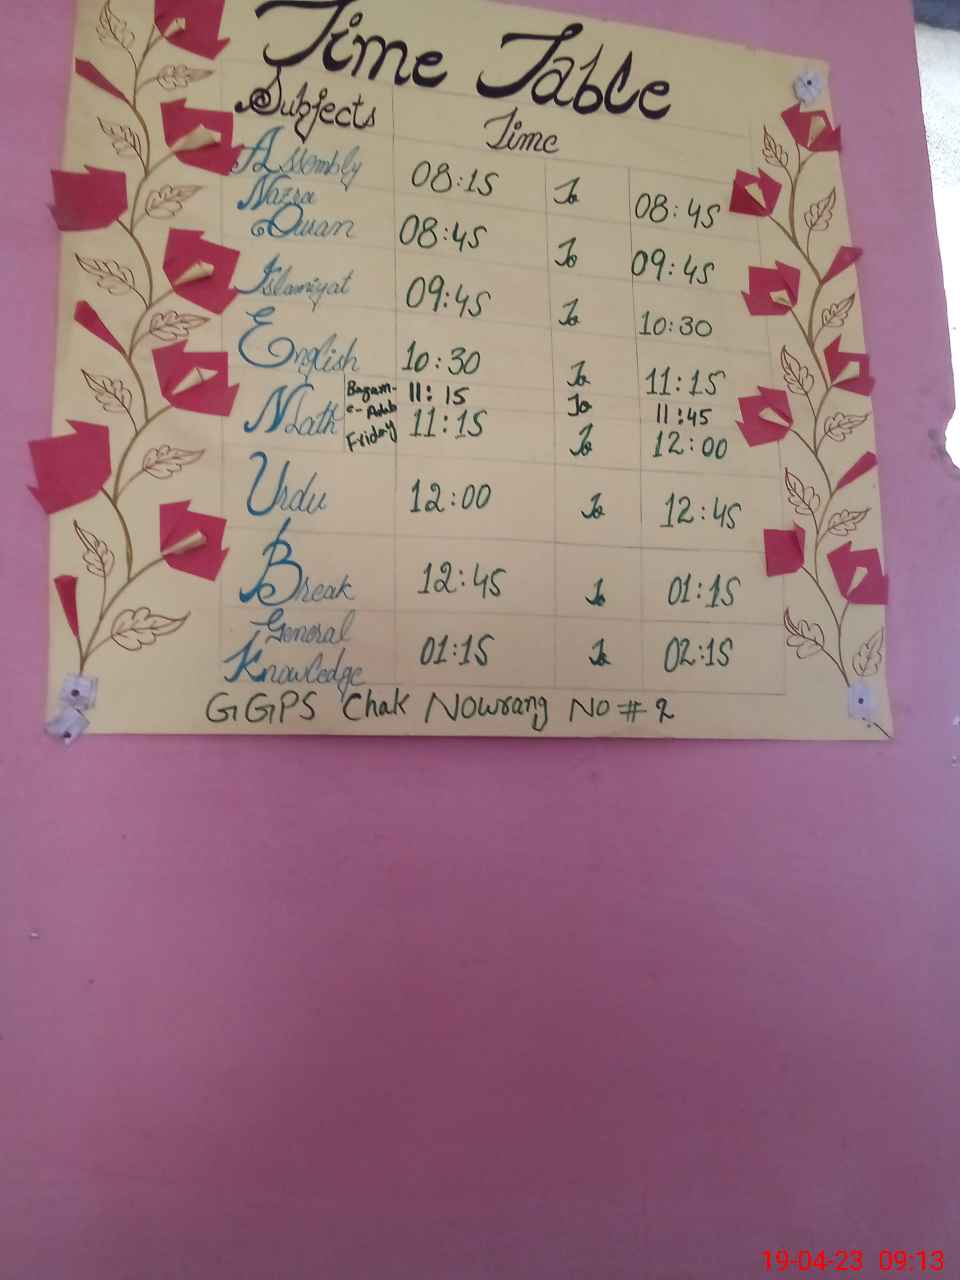 Time Table
Subjects Time
Assembly 08:15 To 08:45
Nazra
Quran 08:45 To 09:45
Islamiyat 09:45 To 10:30
English 10:30 To 11:15
Bazam-e-Adab Friday 11:15 To 11:45
Math 11:15 To 12:00
Urdu 12:00 To 12:45
Break 12:45 To 01:15
General
Knowledge 01:15 To 02:15
GGPS Chak Nowrang No # 2
19-04-23 09:13